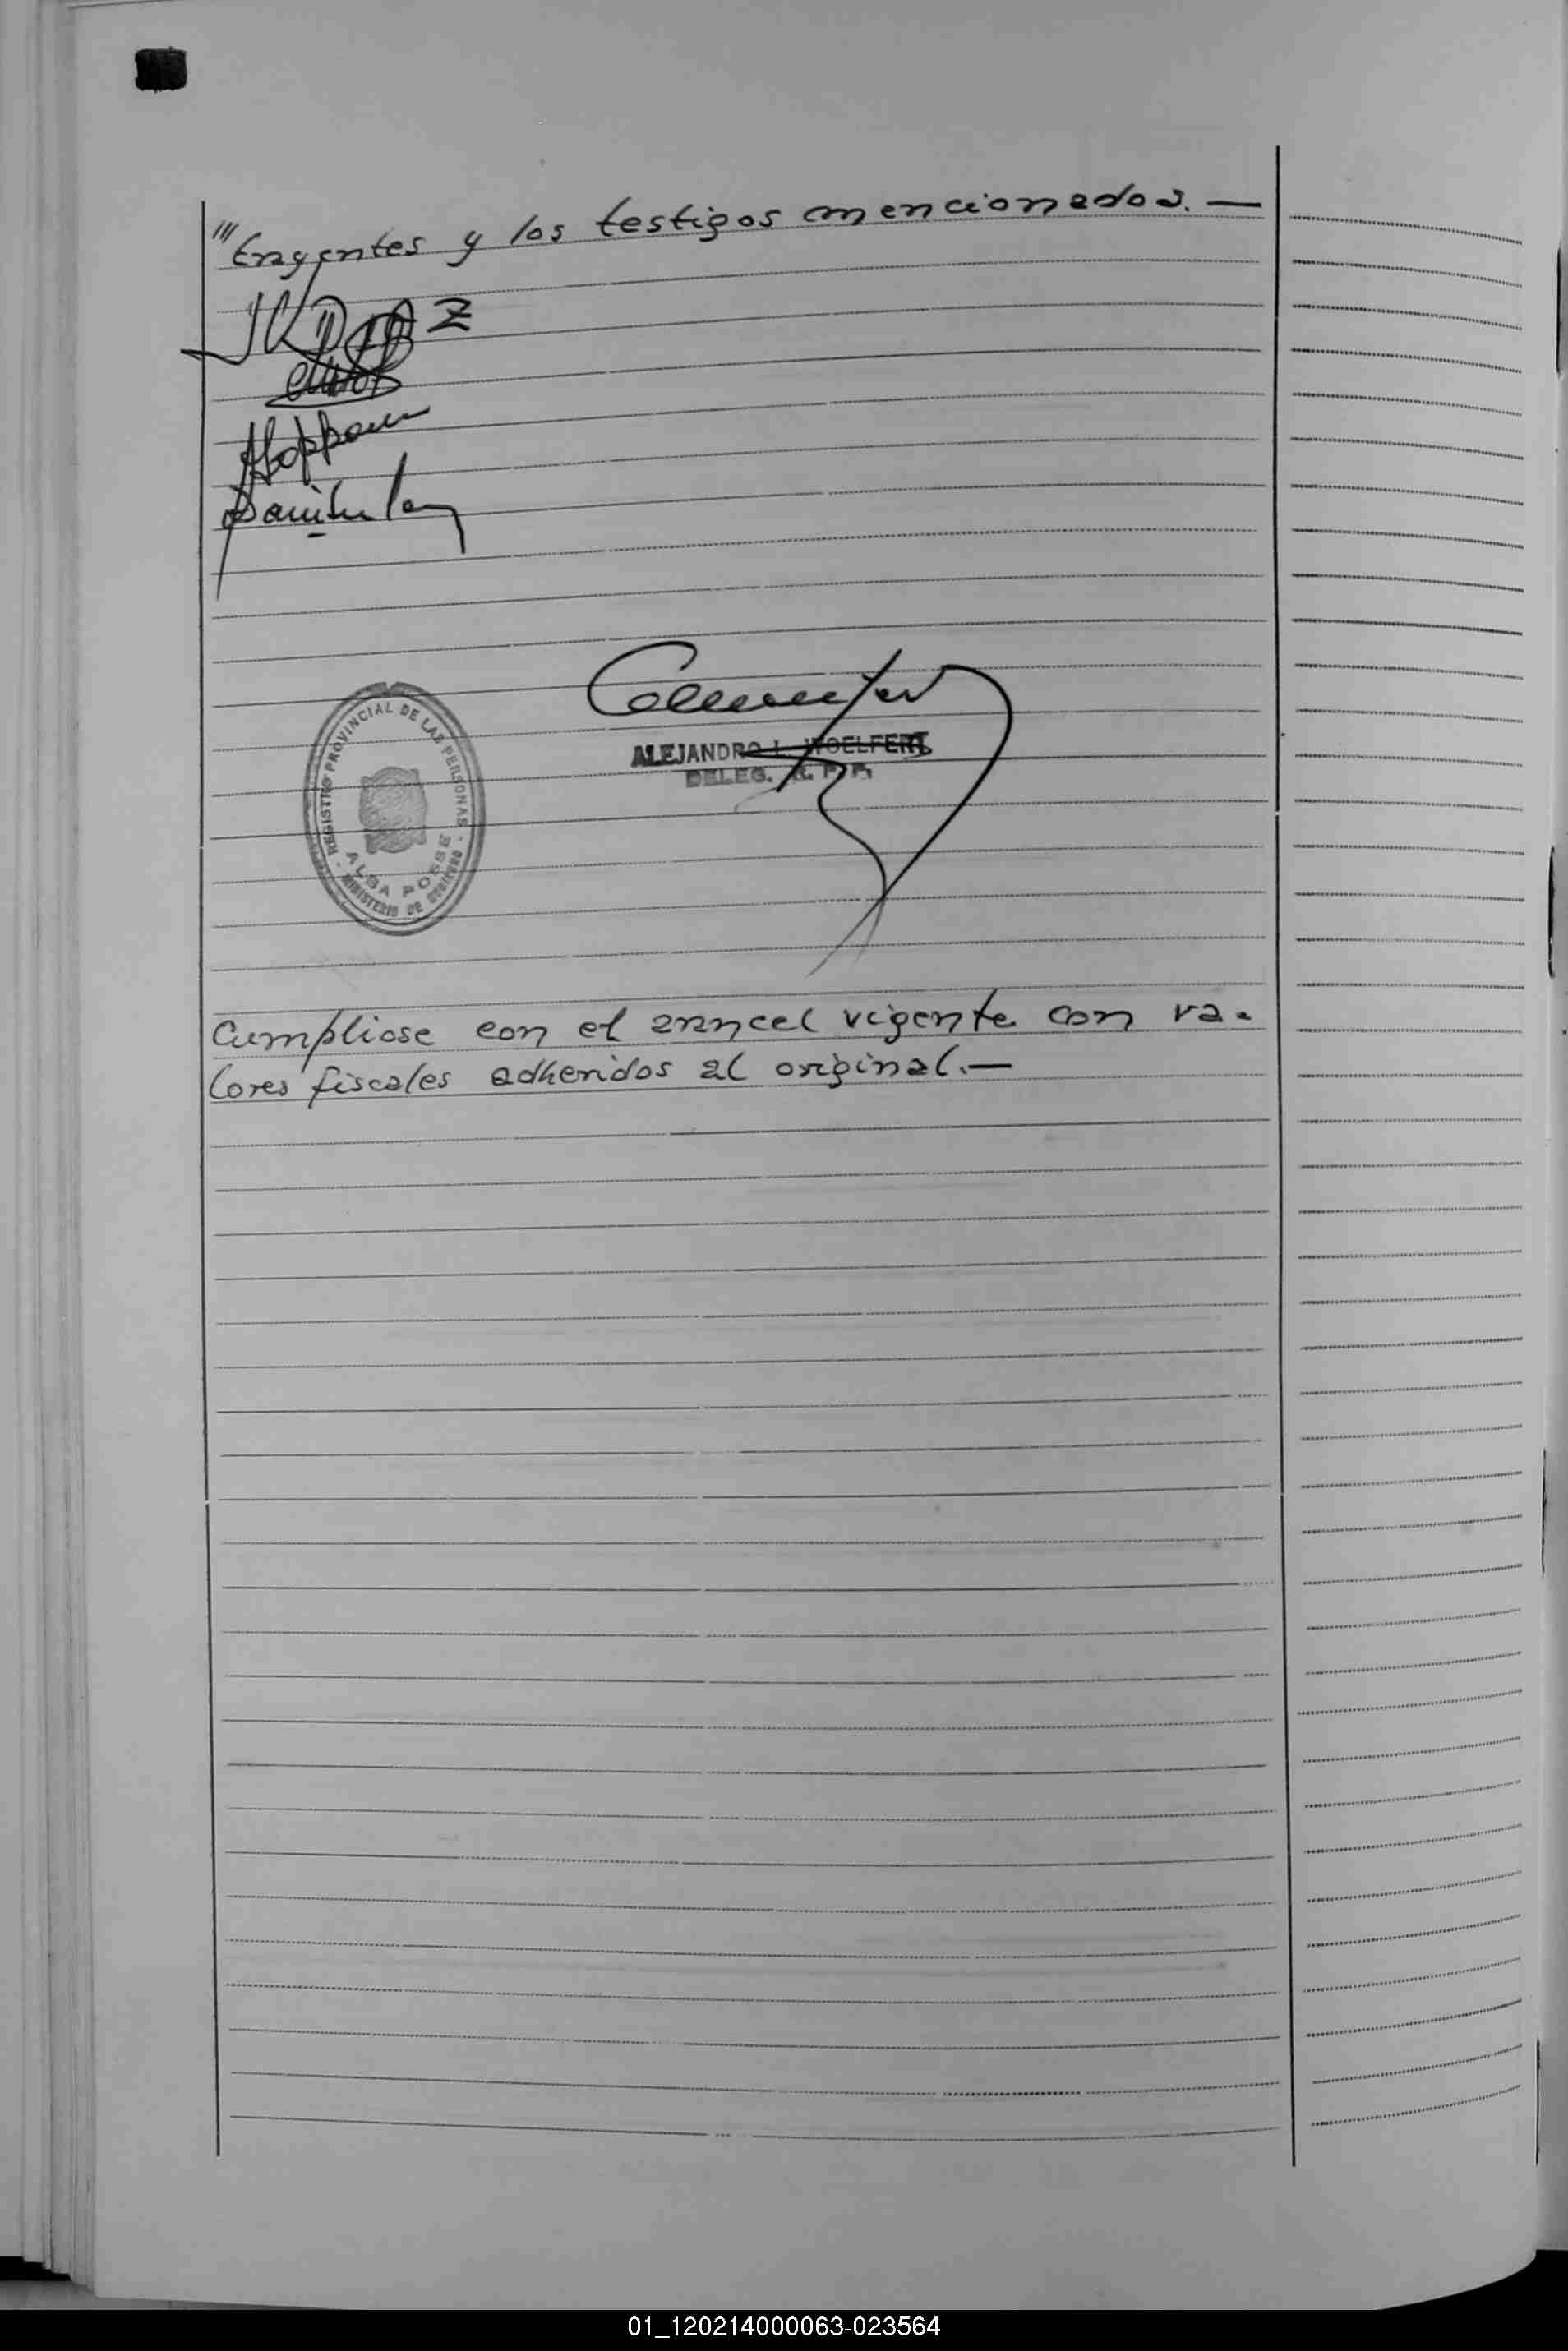 "'trayentes y los testigos mencionados. —
ALEJANDRO L. WOELFERT
DELEG. R. P. P.
- REGISTRO PROVINCIAL DE LAS PERSONAS -
ALBA POSSE
MINISTERIO DE GOBIERNO
Cumpliose con el arancel vigente con va-
lores fiscales adheridos al original.—
01_120214000063-023564